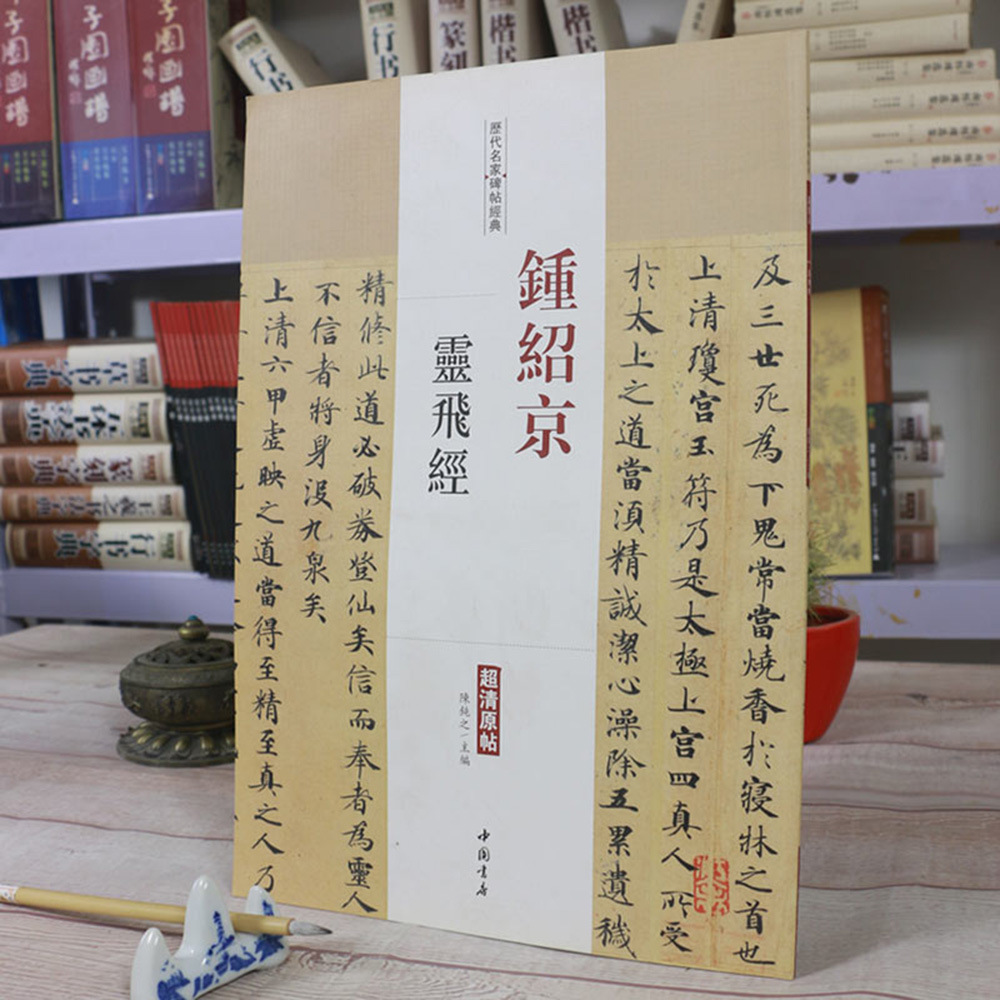 歷代名家碑帖經典
鍾紹京
靈飛經
超清原帖
陳鈍之／主編
中国书店
及三世死為下鬼常當燒香於寢牀之首也
上清瓊宮玉符乃是太極上宮四真人所受
於太上之道當須精誠潔心澡除五累遺穢
精修此道必破券登仙矣信而奉者為靈人
不信者將身沒九泉矣
上清六甲虛映之道當得至精至真之人乃
子園画譜
子園画譜
行书
行书
篆刻
楷书
楷书
草书字典
篆刻字典
行书字典